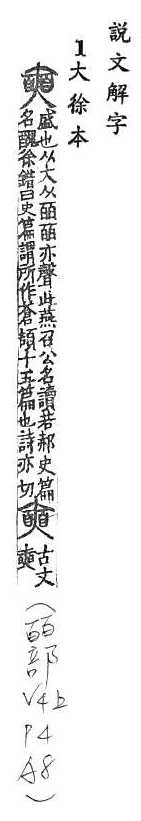 説文解字
1大徐本
奭盛也从大从皕皕亦聲此燕召公名讀若郝史篇
名醜徐鍇曰史篇謂所作倉頡十五篇也詩亦切奭古文
奭
(皕部
V4上
P4
A8)